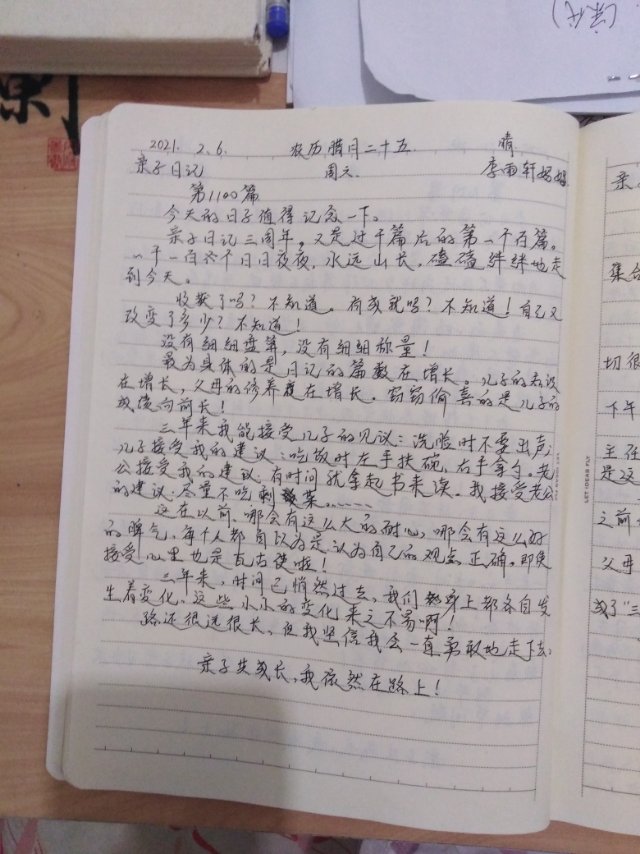 (宋代)
2021. 2.6. 农历腊月二十五 晴
亲子日记 周六. 李雨轩妈妈
第1100篇
今天的日子值得记念一下。
亲子日记三周年,又是过千篇后的第一个百篇。
一千一百六个日日夜夜,水远山长,磕磕绊绊地走
到今天。
收获了吗?不知道。有成就吗?不知道!自己又
改变了多少?不知道!
没有细细盘算,没有细细称量!
最为具体的是日记的篇数在增长。儿子的知识
在增长,父母的修养在增长。窃窃偷喜的是儿子的
成绩向前长!
三年来我能接受儿子的见议:洗脸时不要出声;
儿子接受我的建议:吃饭时左手扶碗,右手拿勺。老
公接受我的建议:有时间就拿起书来读。我接受老公
的建议:尽量不吃剩菜……
这在以前,哪会有这么大的耐心,哪会有这么好
的脾气,每个人都自以为是,认为自己的观点正确。即使
接受,心里也是瓦古使啦!
三年来,时间已悄然过去,我们身上都各自发
生着变化,这些小小的变化来之不易啊!
路还很远很长,但我坚信我会一直勇敢地走下去.
亲子共成长,我依然在路上!
亲
集合
切很
下午
主任
是这
之前
父母
成了“三
LET DREAM FLY